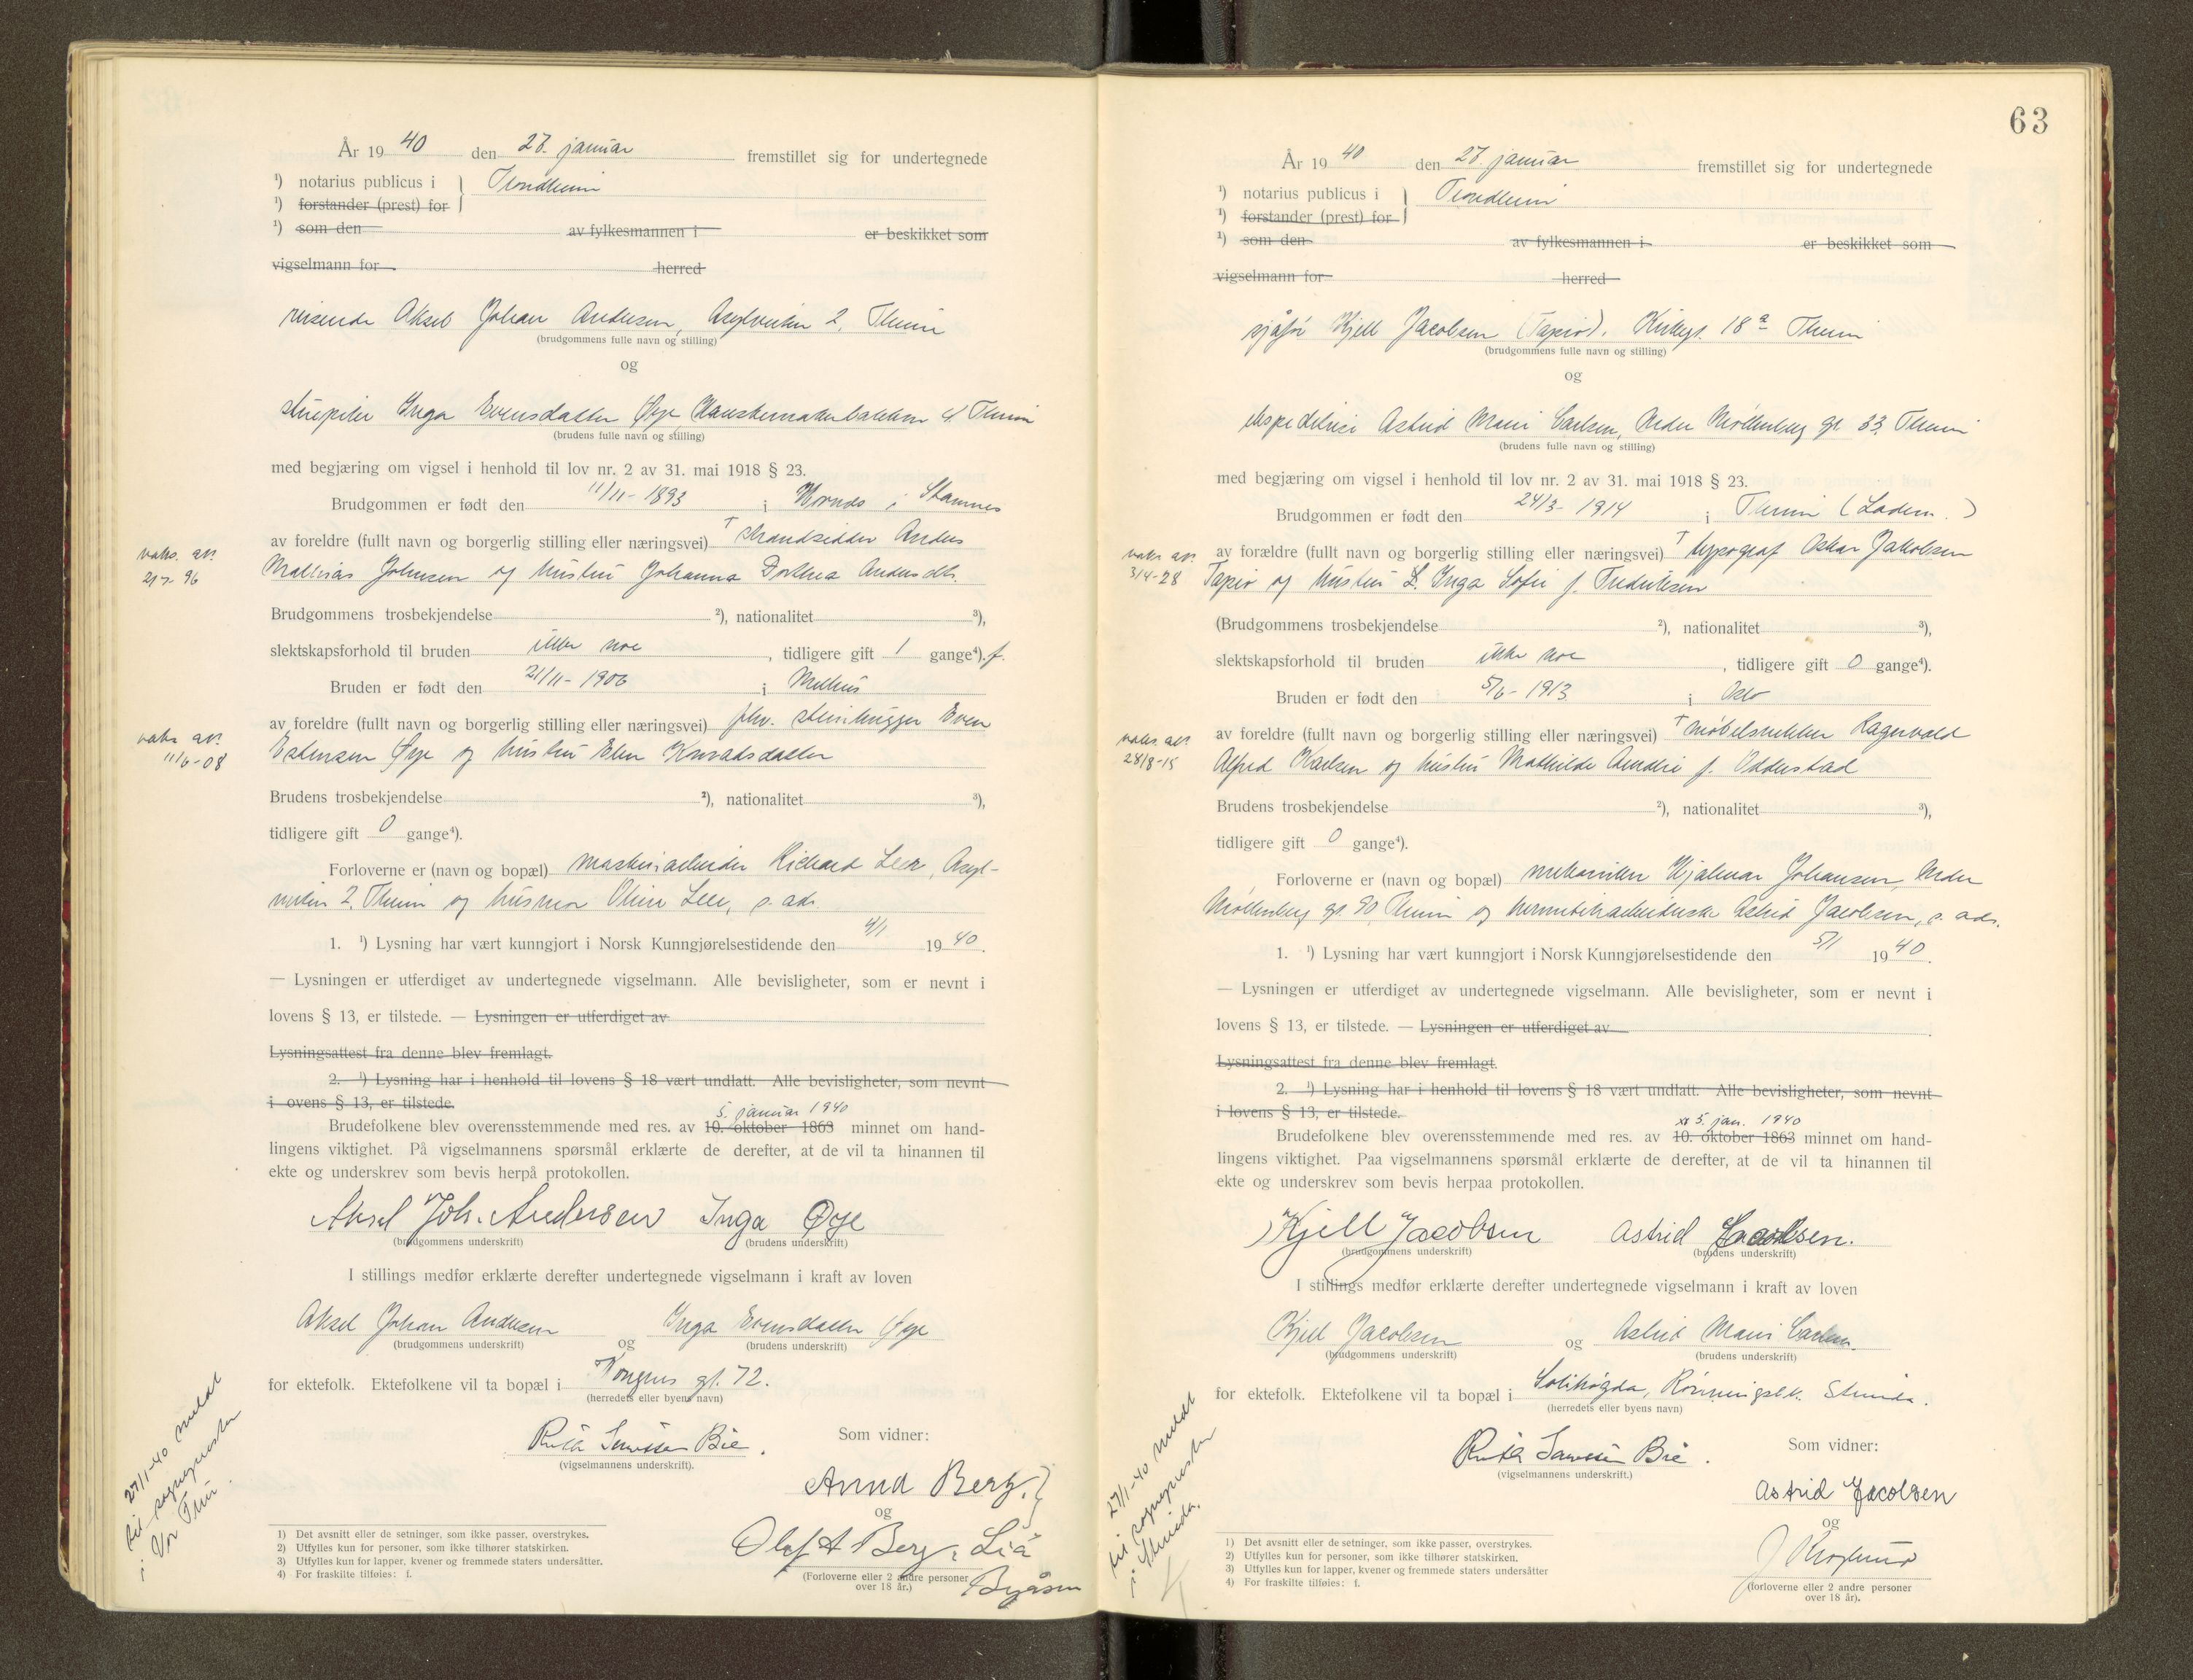 År 19 40 den 27. januar fremstillet sig for undertegnede
¹) notarius publicus i } Trondheim
¹) forstander (prest) for
¹) som den av fylkesmannen i er beskikket som
vigselmann for herred
reisende Aksel Johan Andersen, Asylveiten 2, Theim
(brudgommens fulle navn og stilling)
og
Inga Evensdatter Øye, Hanskemakerbakken 4 Theim
(brudens fulle navn og stilling)
med begjæring om vigsel i henhold til lov nr. 2 av 31. mai 1918 § 23.
Brudgommen er født den 11/11- 1893 i i Stamnes
av foreldre (fullt navn og borgerlig stilling eller næringsvei) † strandsidder Anders
vaks. att.
21/7- 96
Mathias Johnsen og hustru Johanna Dorthea Andersdtr.
Brudgommens trosbekjendelse ²), nationalitet ³),
slektskapsforhold til bruden ikke noe, tidligere gift 1 gange⁴). f.
Bruden er født den 21/11- 1906 i Melhus
av foreldre (fullt navn og borgerlig stilling eller næringsvei) fhv. stenhugger Even
vaks. att.
11/6-08
Estensen Øye og hustru Elen
Brudens trosbekjendelse ²), nationalitet ³),
tidligere gift 0 gange⁴).
Forloverne er (navn og bopæl) maskinarbeider Richard Leer, Asyl-
veiten 2, Theim og husmor Oline Leer, s. adr.
1. ¹) Lysning har vært kunngjort i Norsk Kunngjørelsestidende den 4/1 1940.
— Lysningen er utferdiget av undertegnede vigselmann. Alle bevisligheter, som er nevnt i
lovens § 13, er tilstede. — Lysningen er utferdiget av
Lysningsattest fra denne blev fremlagt.
2. ¹) Lysning har i henhold til lovens § 18 vært undlatt. Alle bevisligheter, som nevnt
i ovens § 13, er tilstede.
5. januar 1940
Brudefolkene blev overensstemmende med res. av 10. oktober 1863 minnet om hand-
lingens viktighet. På vigselmannens spørsmål erklærte de derefter, at de vil ta hinannen til
ekte og underskrev som bevis herpå protokollen.
Aksel Joh. Andersen Inga Øye
(brudgommens underskrift) (brudens underskrift)
I stillings medfør erklærte derefter undertegnede vigselmann i kraft av loven
Aksel Johan Andersen og Inga Evensdatter Øye
(brudgommens underskrift) (brudens underskrift)
for ektefolk. Ektefolkene vil ta bopæl i Kongens gt. 72.
(herredets eller byens navn)
Bie.
(vigselmannens underskrift).
Som vidner:
Anna Berg.
og
Olaf A Berg, Lia
Byåsen
(Forloverne eller 2 andre personer
over 18 år.)
27/1-40 meldt
til sognepresten
i Vor Frue.
1) Det avsnitt eller de setninger, som ikke passer, overstrykes.
2) Utfylles kun for personer, som ikke tilhører statskirken.
3) Utfylles kun for lapper, kvener og fremmede staters undersåtter.
4) For fraskilte tilføies: f.
63
År 19 40 den 27. januar fremstillet sig for undertegnede
¹) notarius publicus i } Trondheim
¹) forstander (prest) for
¹) som den av fylkesmannen i er beskikket som
vigselmann for herred
sjåfør Kjell Jacobsen (Tapio). Kirkegt. 18 a Theim
(brudgommens fulle navn og stilling)
og
ekspeditrise Astrid Marie Carlsen, Nedre Møllenberg gt. 33 Theim
(brudens fulle navn og stilling)
med begjæring om vigsel i henhold til lov nr. 2 av 31. mai 1918 § 23.
Brudgommen er født den 24/3- 1914 i Theim (Ladem.)
av forældre (fullt navn og borgerlig stilling eller næringsvei) † typograf Oskar Jakobsen
vaks. att.
3/4-28
Tapio og hustru L. Inga Sofie f. Fredriksen
(Brudgommens trosbekjendelse ²), nationalitet ³),
slektskapsforhold til bruden ikke noe, tidligere gift 0 gange⁴).
Bruden er født den 5/6- 1913 i Oslo
av foreldre (fullt navn og borgerlig stilling eller næringsvei) † møbelsnekker Ragnvald
vaks. att.
28/8-15
Alfred Karlsen og hustru Mathilde f. Oddestad
Brudens trosbekjendelse ²), nationalitet ³),
tidligere gift 0 gange⁴).
Forloverne er (navn og bopæl) mekaniker Hjalmar Johansen, Nedre
Møllenberg gt. 90 Theim og hermetikkarbeiderske Astrid Jacobsen, s. adr.
1. ¹) Lysning har vært kunngjort i Norsk Kunngjørelsestidende den 5/1 1940.
— Lysningen er utferdiget av undertegnede vigselmann. Alle bevisligheter, som er nevnt i
lovens § 13, er tilstede. — Lysningen er utferdiget av
Lysningsattest fra denne blev fremlagt.
2. ¹) Lysning har i henhold til lovens § 18 vært undlatt. Alle bevisligheter, som nevnt
i lovens § 13, er tilstede.
5. jan. 1940
Brudefolkene blev overensstemmende med res. av 10. oktober 1863 minnet om hand-
lingens viktighet. Paa vigselmannens spørsmål erklærte de derefter, at de vil ta hinannen til
ekte og underskrev som bevis herpaa protokollen.
Kjell Jacobsen Astrid Carlsen.
(brudgommens underskrift) (brudens underskrift)
I stillings medfør erklærte derefter undertegnede vigselmann i kraft av loven
Kjell Jacobsen og Astrid Marie Carlsen.
(brudgommens underskrift) (brudens underskrift)
for ektefolk. Ektefolkene vil ta bopæl i Solihøgda, Rønningsbk. Strinda.
(herredets eller byens navn)
Bie.
(vigselmannens underskrift.)
Som vidner:
Astrid Jacobsen
og
(forloverne eller 2 andre personer
over 18 år).
27/1-40 meldt
til sognepresten
i Strinda.
1) Det avsnitt eller de setninger, som ikke passer, overstrykes.
2) Utfylles kun for personer, som ikke tilhører statskirken.
3) Utfylles kun for lapper, kvener og fremmede staters undersåtter
4) For fraskilte tilføies: f.